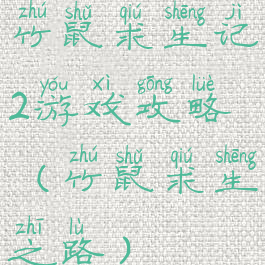 zhú shǔ qiú shēng jì
竹鼠求生记
yóu xì gōng lüè
2游戏攻略
zhú shǔ qiú shēng
（竹鼠求生
zhī lù
之路）